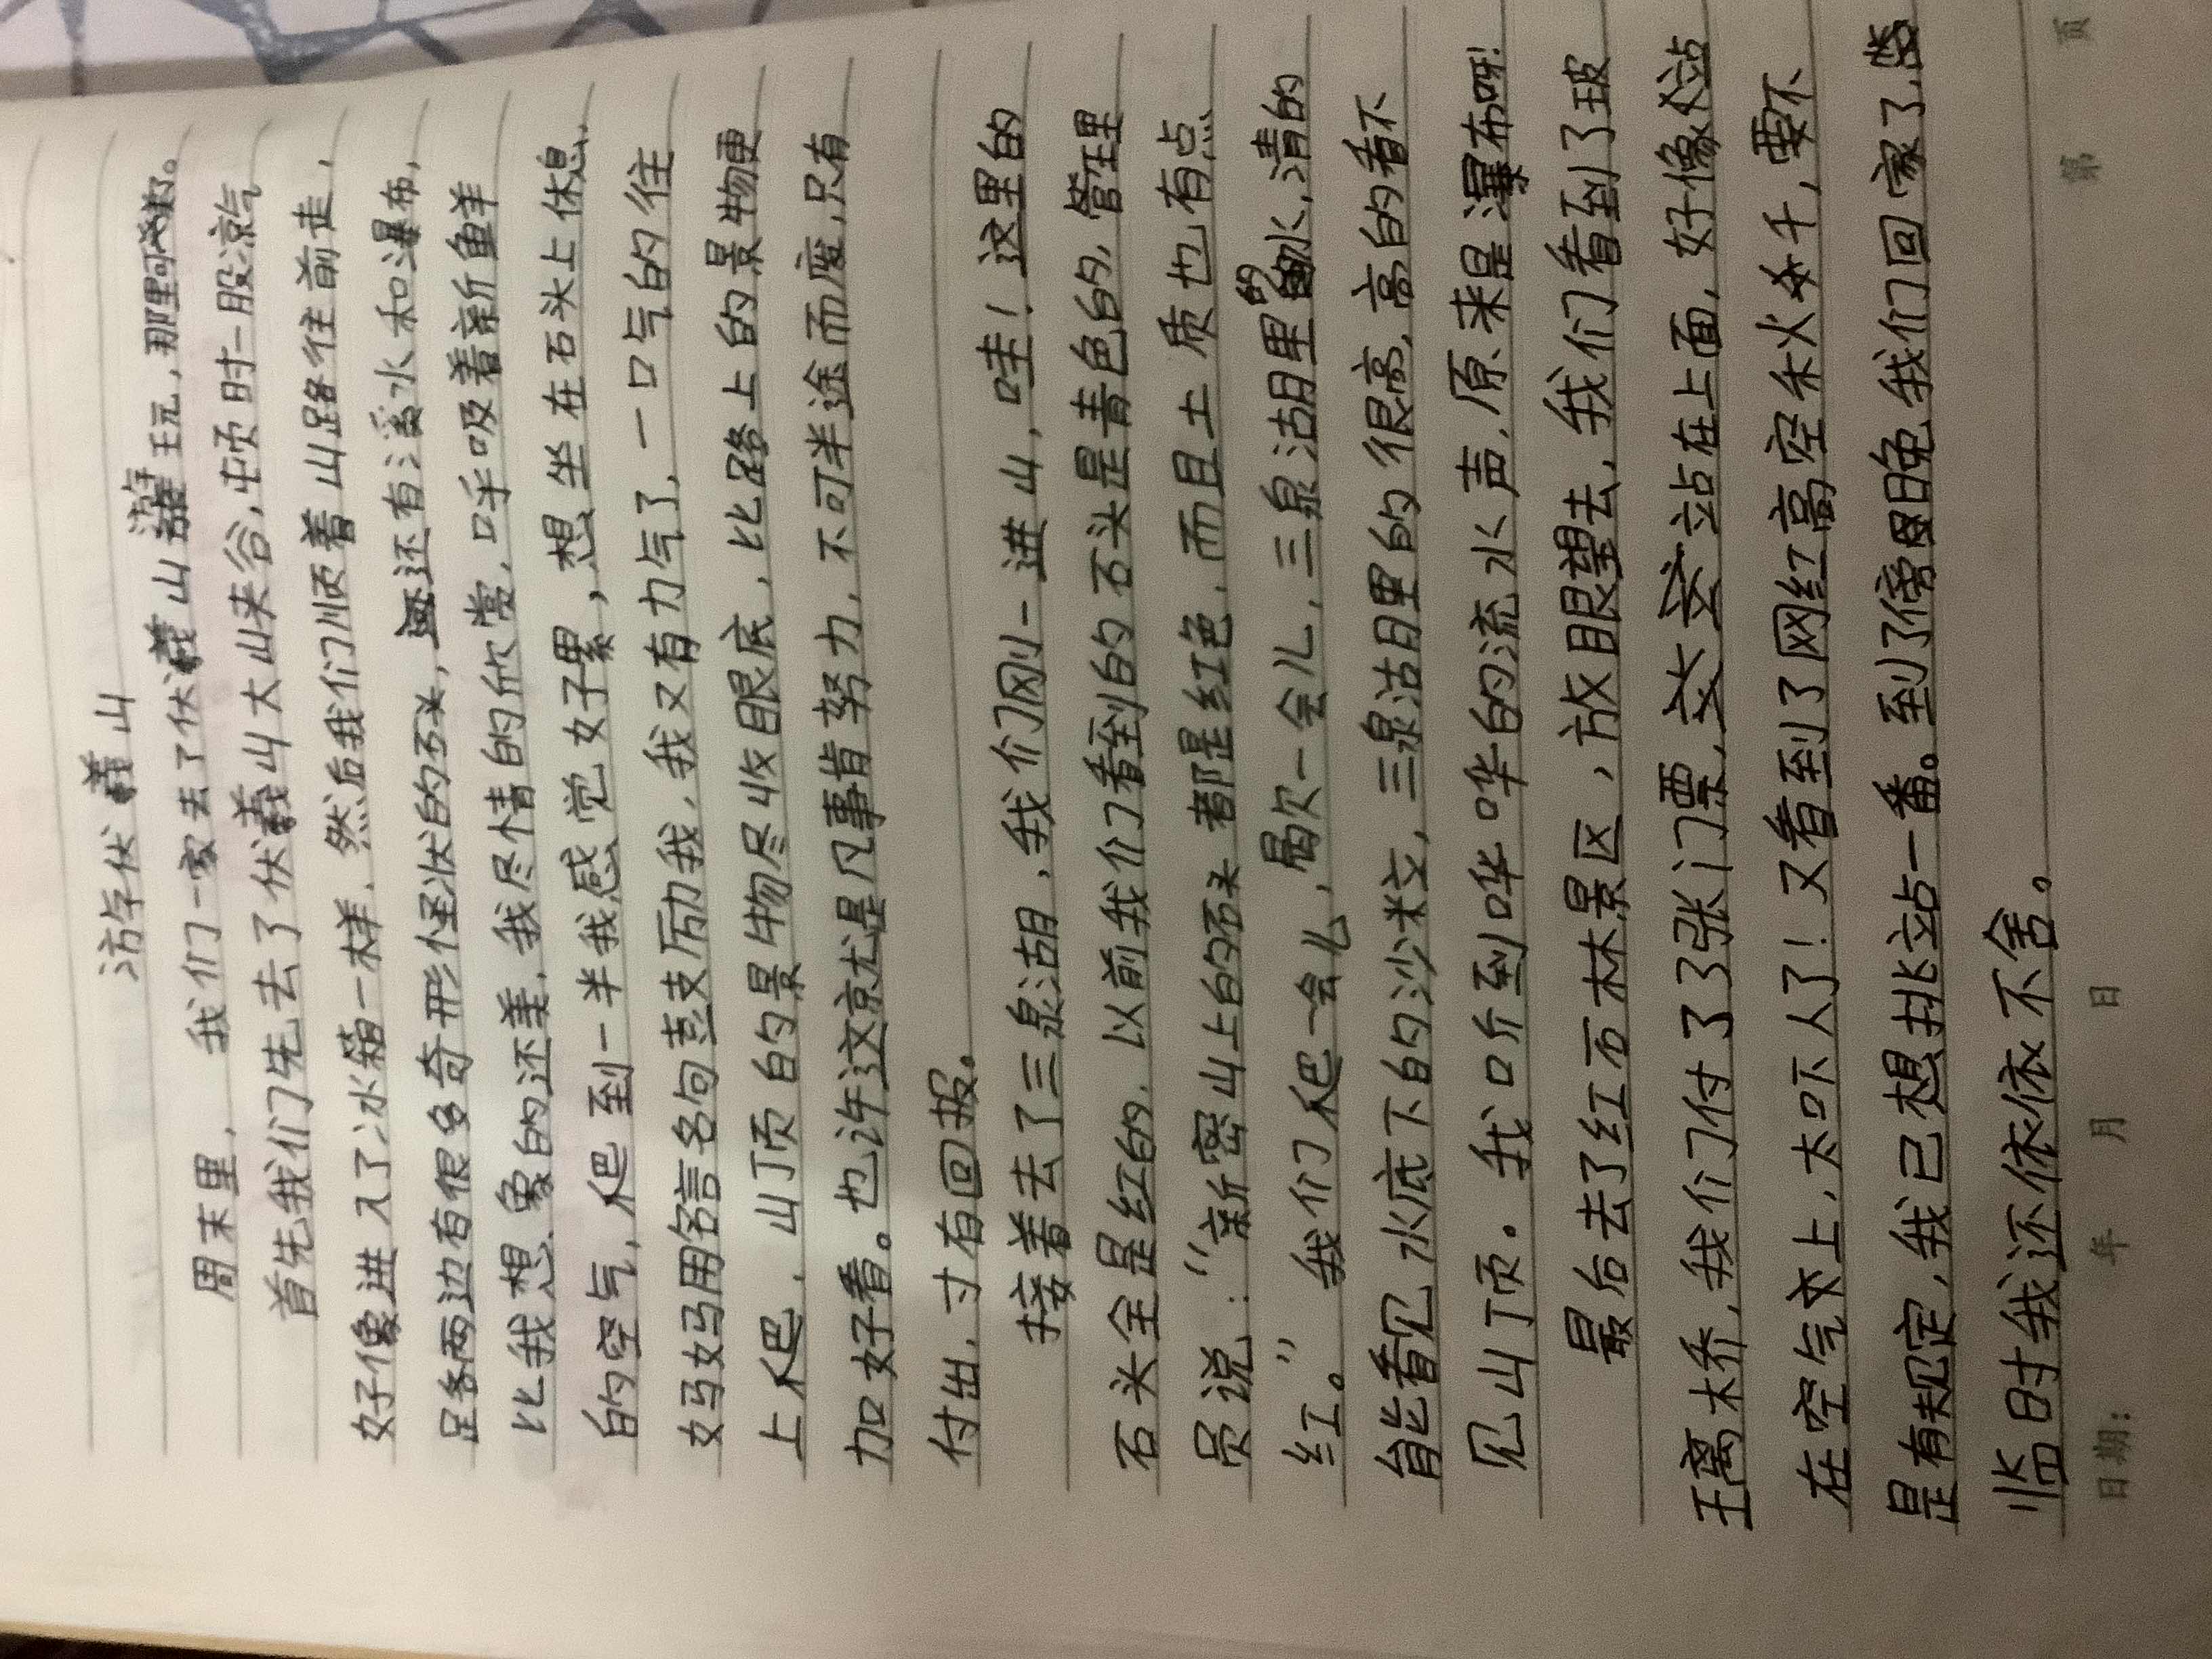 游伏羲山
周末里，我们一家去了伏羲山游玩，那里可好。
首先我们先去了伏羲山大山来谷，屯顷时一股凉气
好像进入了冰箱一样，然后我们顺着山路往前走，
足各两边有很多奇形怪状的石头，还有溪水和瀑布，
比我想象的还美，我尽情的欣赏，呼吸着新鲜
的空气，爬到一半我感觉好累，想坐在石头上休息，
妈妈用名言名句鼓励我，我又有力气了，一口气的往
上爬，山顶的景物尽收眼底，比路上的景物更
加好看。也许这京尤是凡事肯努力，不可半途而废，只有
付出，寸有回报。
接着去了三泉沽月，我们刚一进山，哇！这里的
石头全是红的，以前我们看到的石头是青色的，管理
员说：“新密山上的石头都是红色，而且土质也有点
红。”我们爬一会儿，曷欠一会儿，三泉沽月里的水，清的
能看见水底下的沙粒，三泉沽月里的很高，高的看不
见山顶。我听到哗哗的流水声，原来是瀑布呀！
最后去了红石林景区，放眼望去，我们看到了玻
璃桥，我们付了3张门票，站在上面，好像站
在空气上，太吓人了！又看到了网红高空秋千，要不
是有规定，我已想挑站一番。到了傍晚我们回家了，
临时我还依依不舍。
日期： 年 月 日
第 页